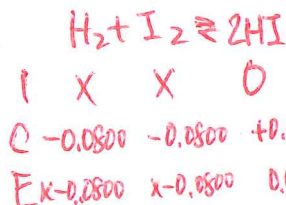 H₂ + I₂ ⇌ 2HI
I x x 0
C -0.0800 -0.0800 +0.
E x-0.0800 x-0.0800 0.